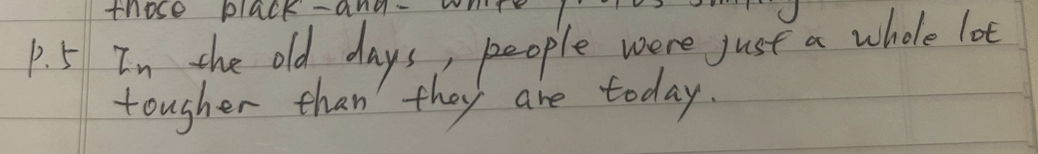 those black-and-white
p.5 In the old days, people were just a whole lot
tougher than they are today.